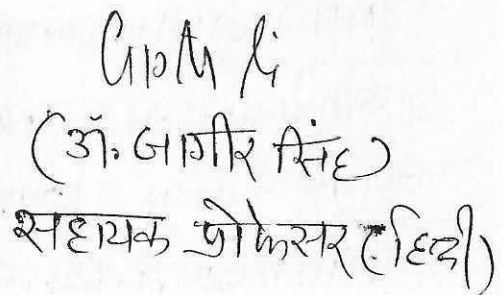 (डॉ. जागीर सिंह)
सहायक प्रोफेसर (हिन्दी)